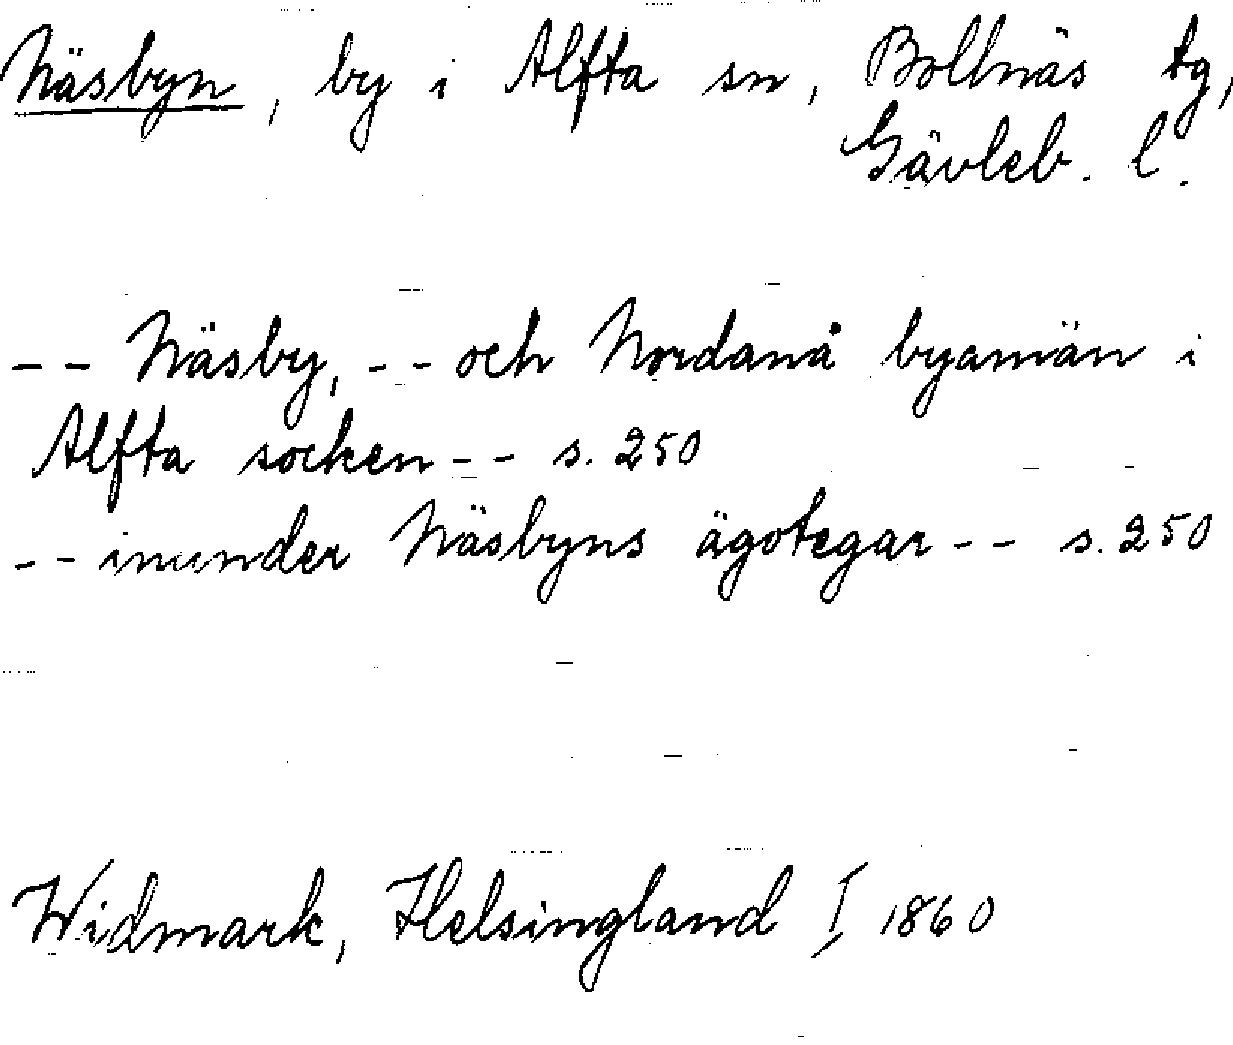 Näsbyn, by i Alfta sn, Bollnäs tg,
Gävleb. l.
-- Näsby, -- och Nordanå byamän i
Alfta socken -- s. 250
-- inunder Näsbyns ägotegar -- s. 250
Widmark, Helsingland I 1860